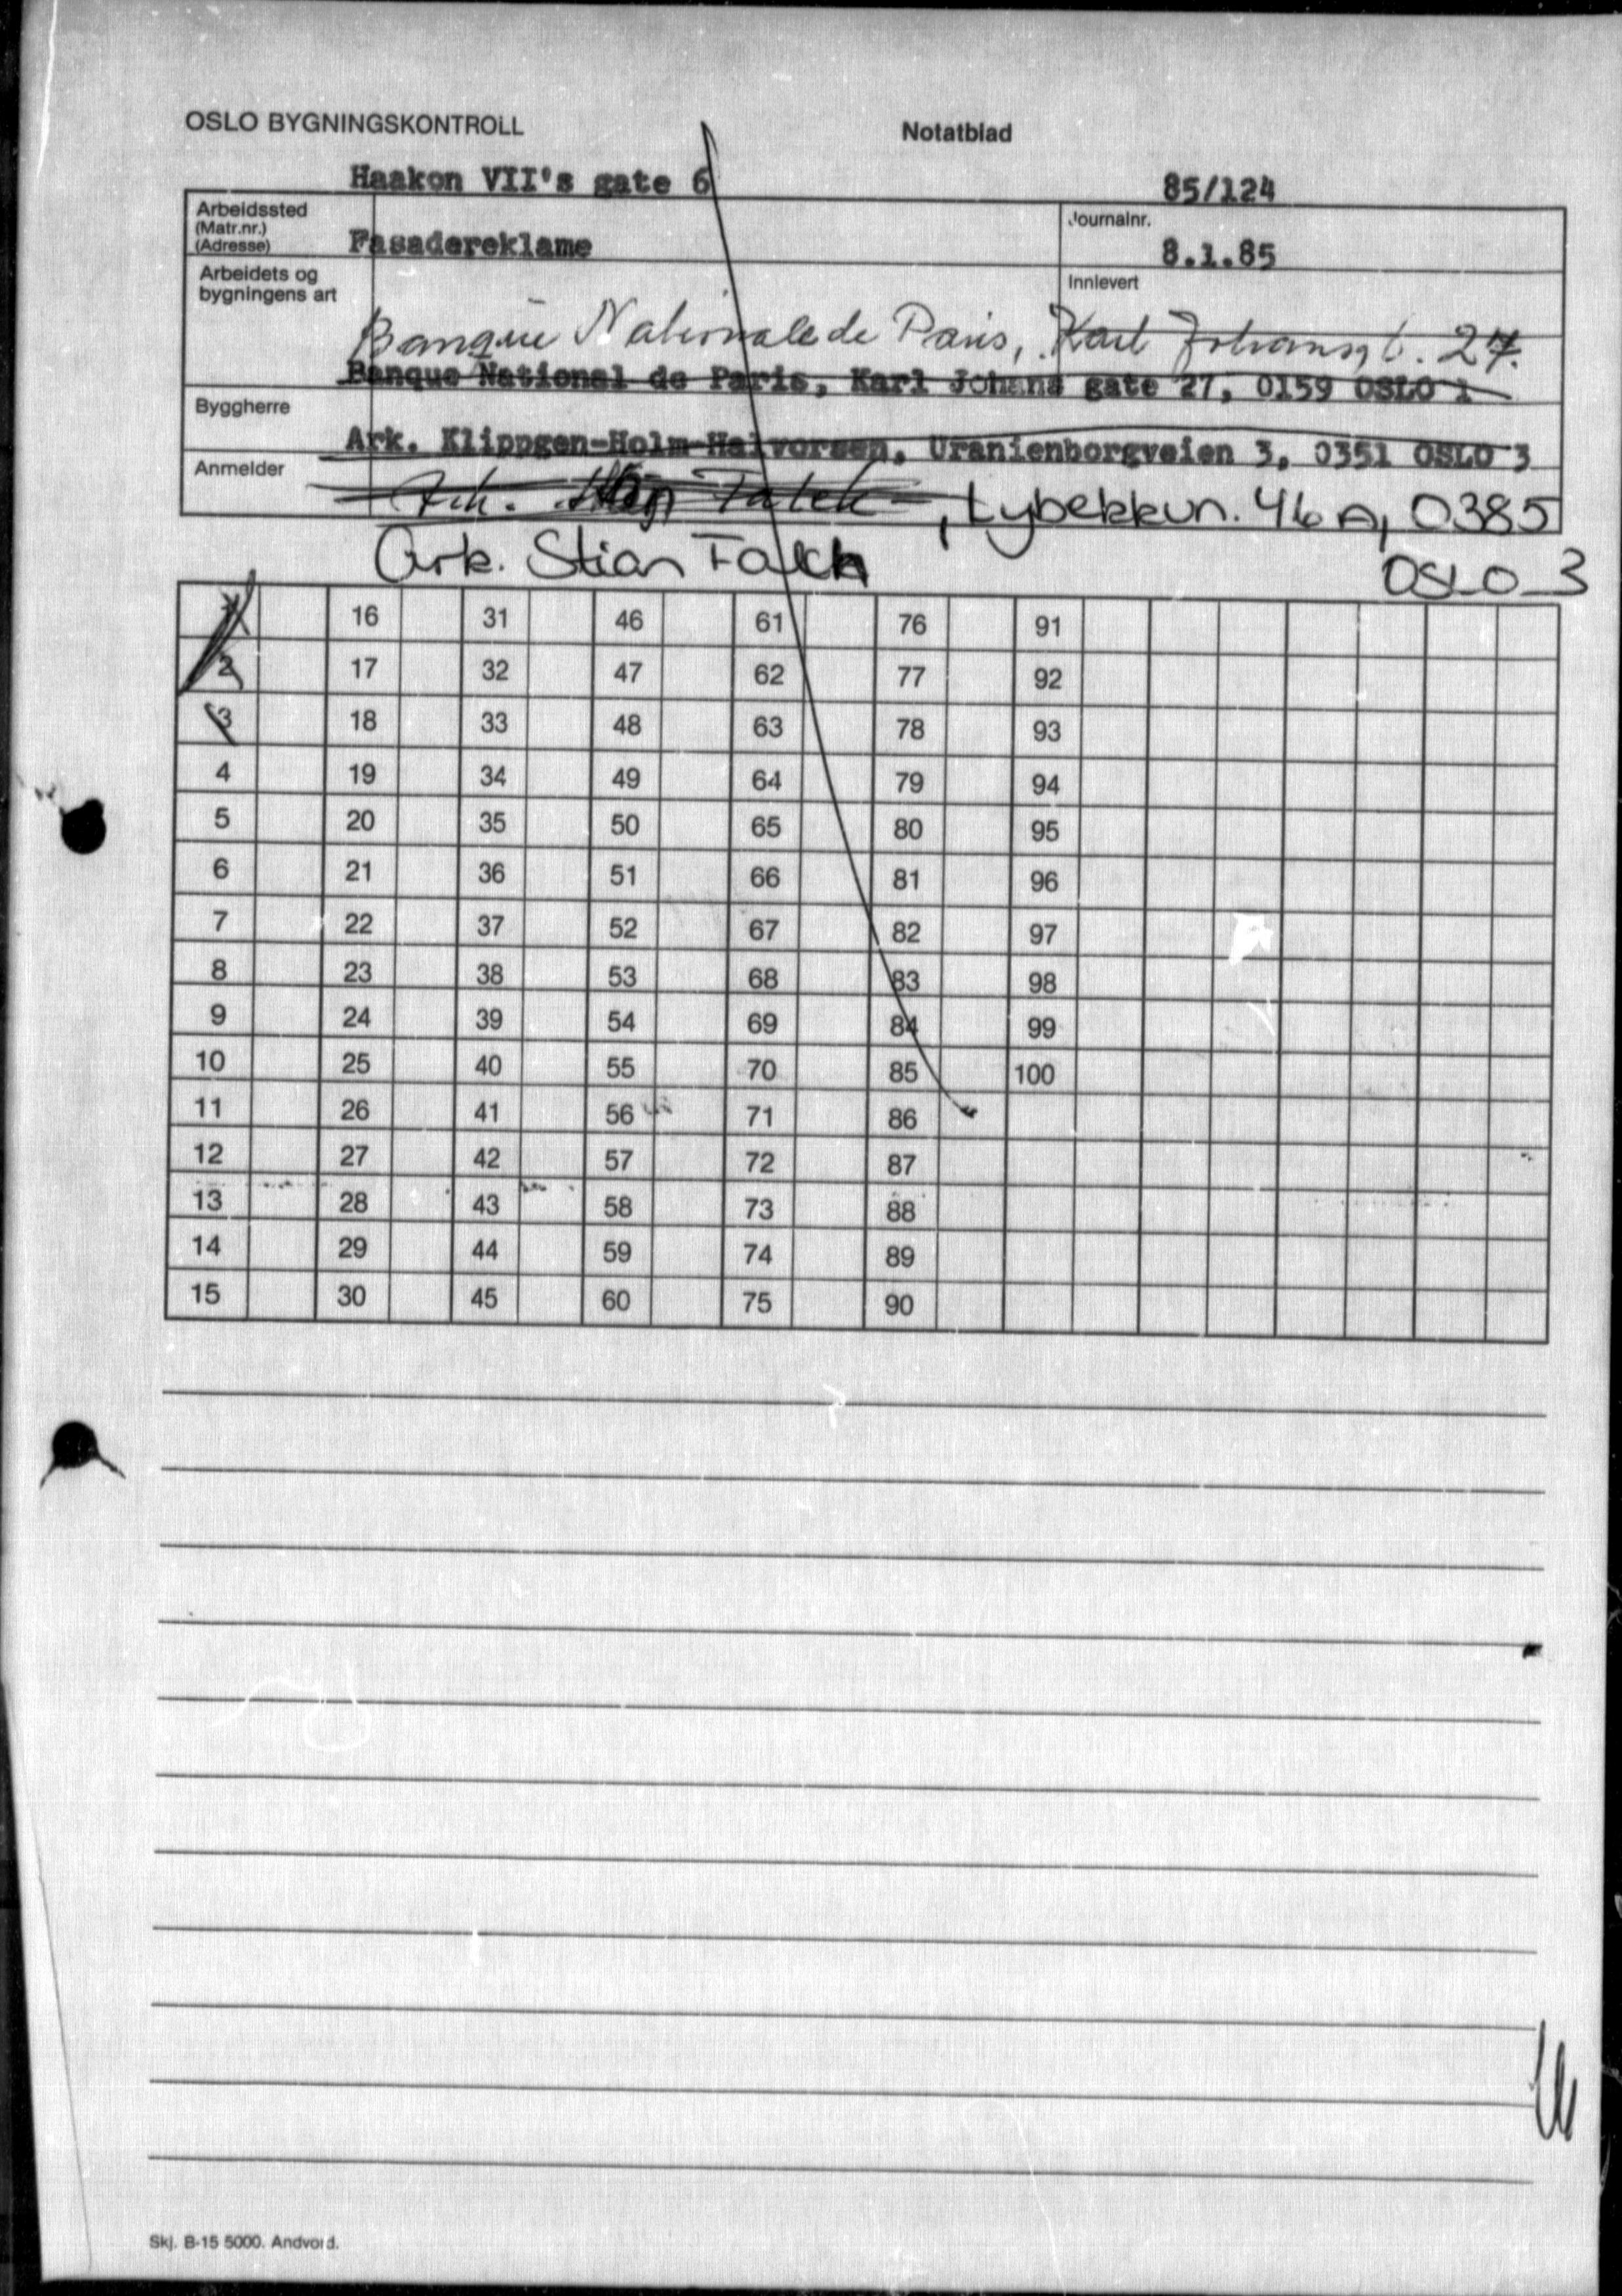 OSLO BYGNINGSKONTROLL Notatblad
Haakon VII's gate 6 85/124
Arbeidssted
(Matr.nr.)
(Adresse)
Journalnr.
Fasadereklame 8.1.85
Arbeidets og
bygningens art
Innlevert
Banque Nationale de Paris, Karl Johansgt. 27.
Banque National de Paris, Karl Johans gate 27, 0159 OSLO 1
Byggherre
Ark. Klippgen-Holm-Halvorsen, Uranienborgveien 3, 0351 OSLO 3
Anmelder
Ark. Falck, Lybekkvn. 46 A, 0385
Ark. Stian Falck OSLO 3
1 16 31 46 61 76 91
2 17 32 47 62 77 92
3 18 33 48 63 78 93
4 19 34 49 64 79 94
5 20 35 50 65 80 95
6 21 36 51 66 81 96
7 22 37 52 67 82 97
8 23 38 53 68 83 98
9 24 39 54 69 84 99
10 25 40 55 70 85 100
11 26 41 56 71 86
12 27 42 57 72 87
13 28 43 58 73 88
14 29 44 59 74 89
15 30 45 60 75 90
Skj. B-15 5000. Andvord.